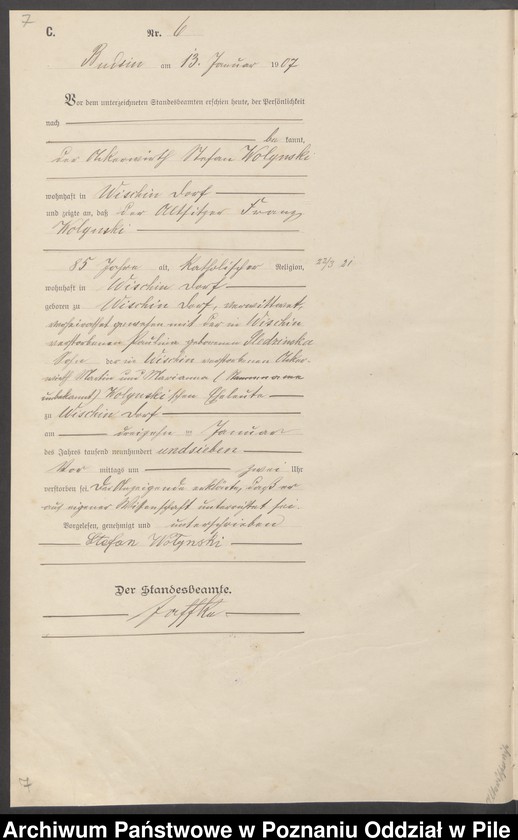 7
C. Nr. 6
Budsin am 13. Januar 1907
Vor dem unterzeichneten Standesbeamten erschien heute, der Persönlichkeit
nach
be kannt,
der Ackerwirth Stefan Wolynski
wohnhaft in Wischin Dorf
und zeigte an, daß der Altsitzer Franz
Wolynski
85 Jahre alt, katholischer Religion,
wohnhaft in Wischin Dorf
geboren zu Wischin Dorf, verwittwet,
verheirathet gewesen mit der in Wischin
verstorbenen Paulina geborenen
Sohn der in Wischin verstorbenen Acker-
wirth Martin und Marianna (
unbekannt) Wolynski'schen Eheleute
zu Wischin Dorf
am Januar
des Jahres tausend neunhundert und sieben
Vor mittags um zwei Uhr
verstorben sei. Der Anzeigende erklärte, daß er
aus eigener Wissenschaft unterrichtet sei.
Vorgelesen, genehmigt und unterschrieben
Stefan Wołynski
Der Standesbeamte.
Archiwum Państwowe w Poznaniu Oddział w Pile